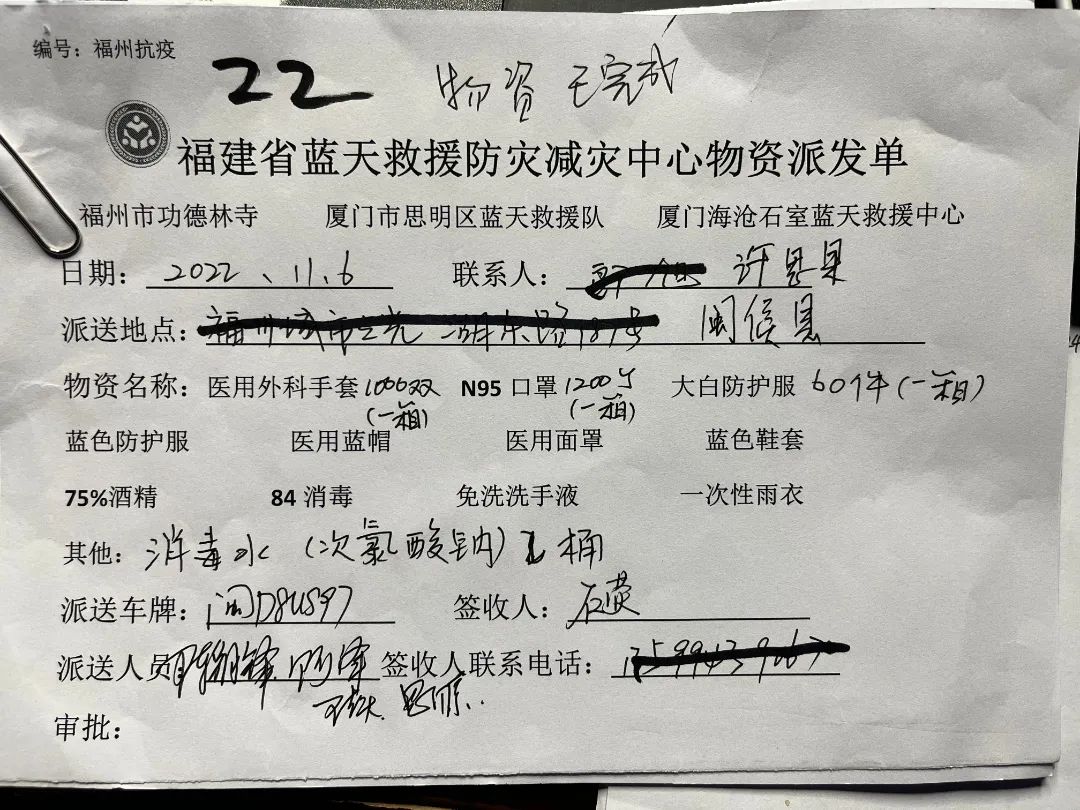 编号：福州抗疫
22 物资 已完成
福建省蓝天救援防灾减灾中心物资派发单
福州市功德林寺 厦门市思明区蓝天救援队 厦门海沧石室蓝天救援中心
日期： 2022、11.6 联系人： 许
派送地点： 闽侯县
物资名称：医用外科手套1000双 N95 口罩1200个 大白防护服 60件(一箱)
(一箱) (一箱)
蓝色防护服 医用蓝帽 医用面罩 蓝色鞋套
75%酒精 84 消毒 免洗洗手液 一次性雨衣
其他：消毒水（次氯酸钠） 桶
派送车牌： 签收人：
派送人员 签收人联系电话：
审批：